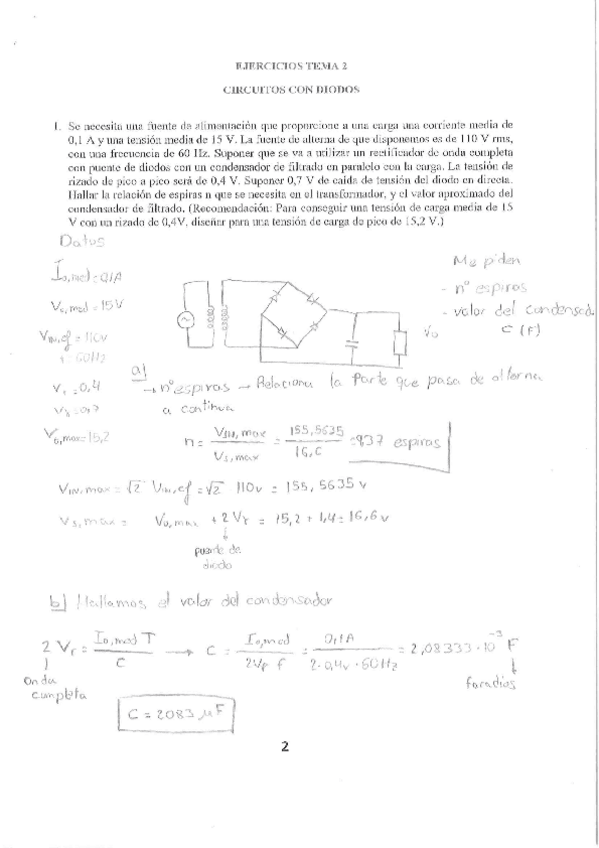 EJERCICIOS TEMA 2
CIRCUITOS CON DIODOS
1. Se necesita una fuente de alimentación que proporcione a una carga una corriente media de
0,1 A y una tensión media de 15 V. La fuente de alterna de que disponemos es de 110 V rms,
con una frecuencia de 60 Hz. Suponer que se va a utilizar un rectificador de onda completa
con puente de diodos con un condensador de filtrado en paralelo con la carga. La tensión de
rizado de pico a pico será de 0,4 V. Suponer 0,7 V de caída de tensión del diodo en directa.
Hallar la relación de espiras n que se necesita en el transformador, y el valor aproximado del
condensador de filtrado. (Recomendación: Para conseguir una tensión de carga media de 15
V con un rizado de 0,4V, diseñar para una tensión de carga de pico de 15,2 V.)
Datos
Me piden
Io,med = 0,1A
- nº espiras
Vo,med = 15V
- valor del condensad
C (F)
Vin,ef = 110v
Vo
f = 60Hz
a)
→ nº espiras → Relaciona la parte que pasa de alterna
a continua
Vr = 0,4
Vo,max = 15,2
n = VIN,max / Vs,max = 155,5635 / 16,6 = 937 espiras
VIN,max = √2 VIN,ef = √2 110v = 155,5635 v
Vs,max = Vo,max + 2Vr = 15,2 + 1,4 = 16,6v
puente de
diodo
b) Hallamos el valor del condensador
2 Vr = Io,med T / C → C = Io,med / 2Vr f = 0,1A / 2·0,4v·60Hz = 2,08333·10⁻³ F
onda
completa
faradios
C = 2083 μF
2